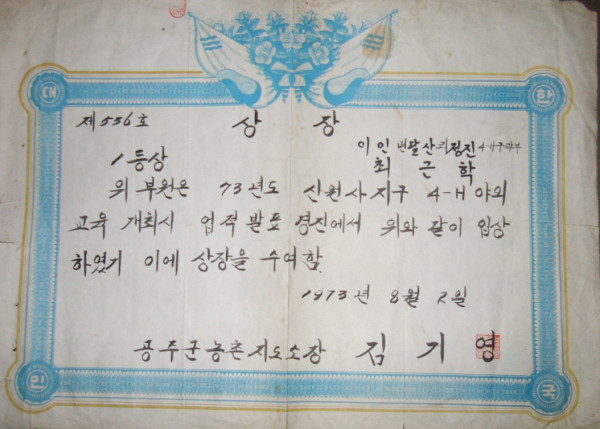 대 한
제 556호
상 장
이인면 달산리 정진 4-H구락부
1등상
최근학
위 부원은 73년도 신원사지구 4-H 야외
교육 개최시 업적발표 경진에서 위와 같이 입상
하였기 이에 상장을 수여함
1973년 8월 2일
공주군농촌지도소장 김기영
민 국